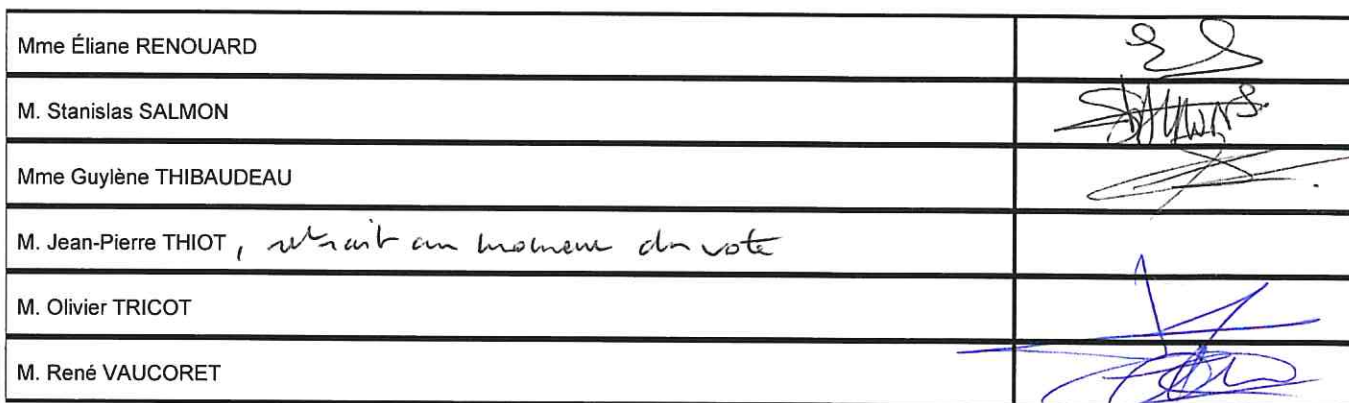 Mme Éliane RENOUARD
M. Stanislas SALMON
Mme Guylène THIBAUDEAU
M. Jean-Pierre THIOT, retrait au moment du vote
M. Olivier TRICOT
M. René VAUCORET